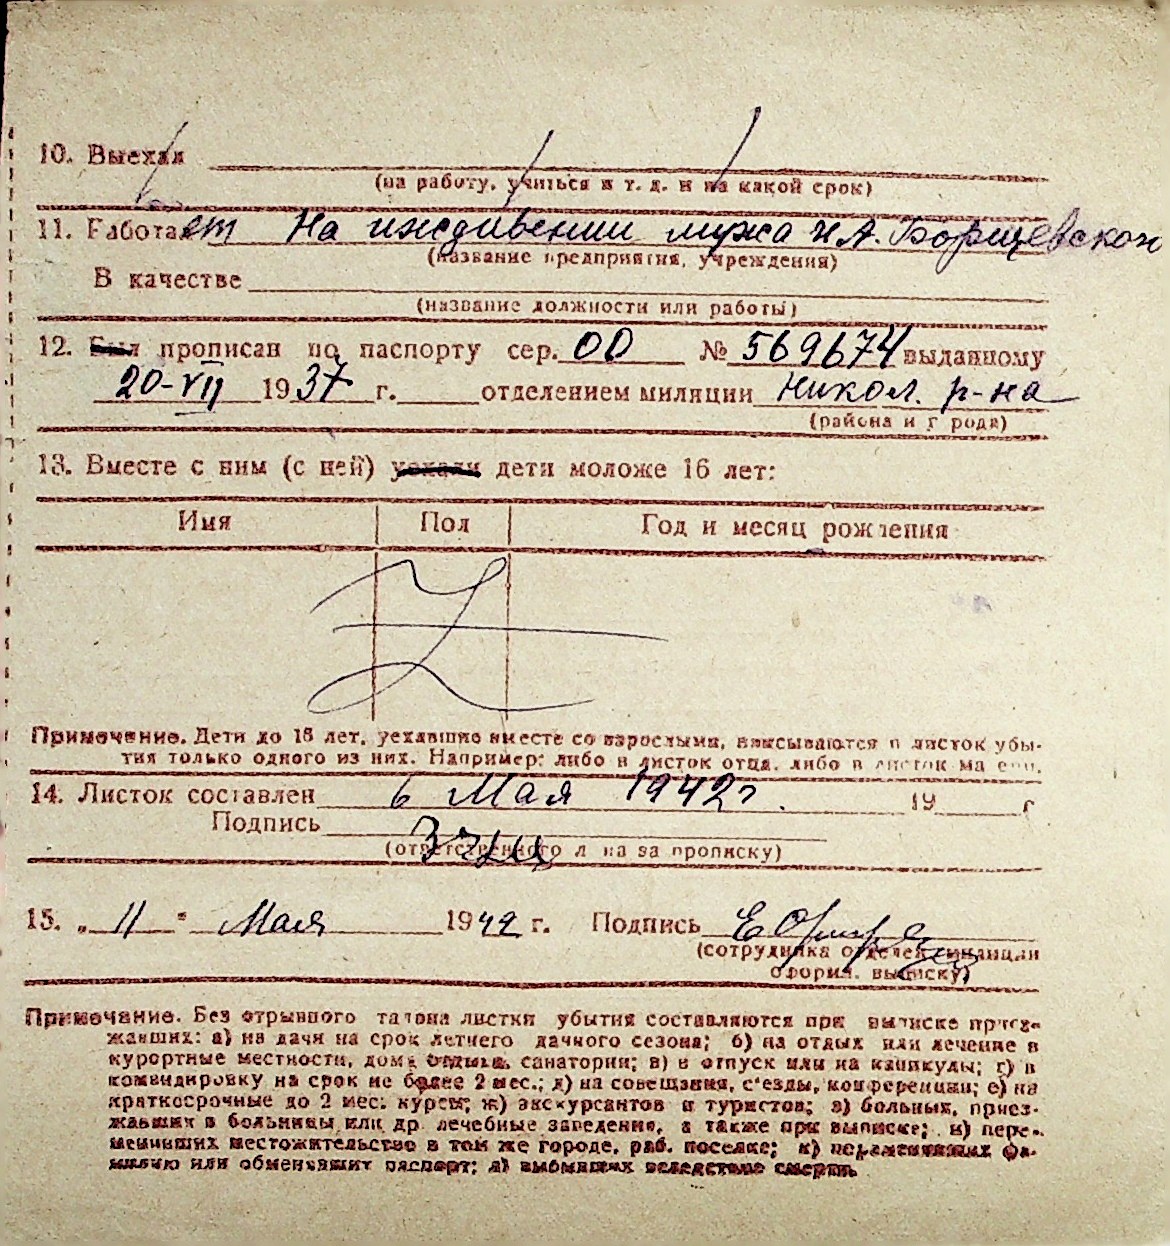 10. Выехал
(на работу, учиться и т. д. и на какой срок)
11. Работает На иждивении мужа Н А. Борщевской
(название предприятия, учреждения)
В качестве
(название должности или работы)
12. Был прописан по паспорту сер. ОО № 569674 выданному
20-VII 1937 г. отделением милиции Никол. р-на
(района и города)
13. Вместе с ним (с ней) уехали дети моложе 16 лет:
Имя Пол Год и месяц рождения
Примечание. Дети до 16 лет, уехавшие вместе со взрослыми, вписываются в листок убы-
тия только одного из них. Например: либо в листок отца, либо в листок матери.
14. Листок составлен 6 Мая 1942 г. 19 г
Подпись
(ответственного лица за прописку)
15. „ 11 " Мая 1942 г. Подпись
(сотрудника отделен. милиции
оформ. выписку)
Примечание. Без отрывного талона листки убытия составляются при выписке приез-
жавших: а) на дачи на срок летнего дачного сезона; б) на отдых или лечение в
курортные местности, дома отдыха, санатории; в) в отпуск или на каникулы; г) в
командировку на срок не более 2 мес.; д) на совещания, с'езды, конференции; е) на
краткосрочные до 2 мес. курсы; ж) экскурсантов и туристов; з) больных, приез-
жавших в больницы или др. лечебные заведения, а также при выписке; и) пере-
менивших местожительство в том же городе, раб. поселке; к) переменивших фа-
милию или обменявших паспорт; л) выбывших вследствие смерти.